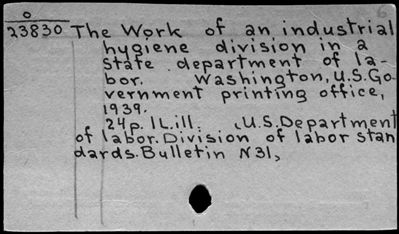 0
23830 The Work of an industrial
hygiene division in a
state department of la-
bor. Washington, U.S. Go-
vernment printing office,
1939.
24p. 1 L. ill. (U.S. Department
of labor. Division of labor stan
dards. Bulletin N31,